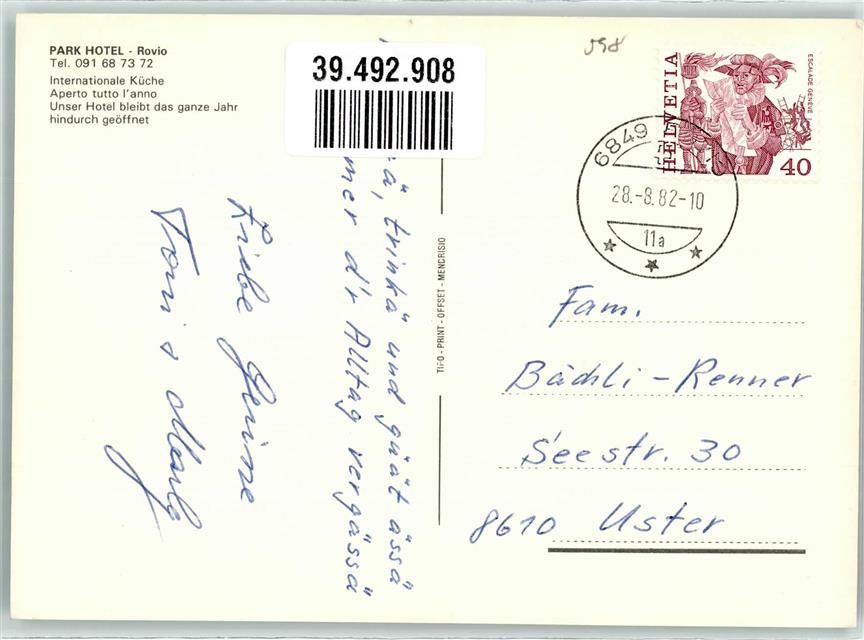 PARK HOTEL - Rovio
Tel. 091 68 73 72
Internationale Küche
Aperto tutto l'anno
Unser Hotel bleibt das ganze Jahr
hindurch geöffnet
39.492.908
598
HELVETIA
ESCALADE GENÈVE
40
6849
28.-8.82-10
11a
trinkä und guät ässä
mer d'r Alltag vergässä
Liebe Grüsse
TIPO-PRINT-OFFSET - MENDRISIO
Fam.
Bächli-Renner
Seestr. 30
8610 Uster